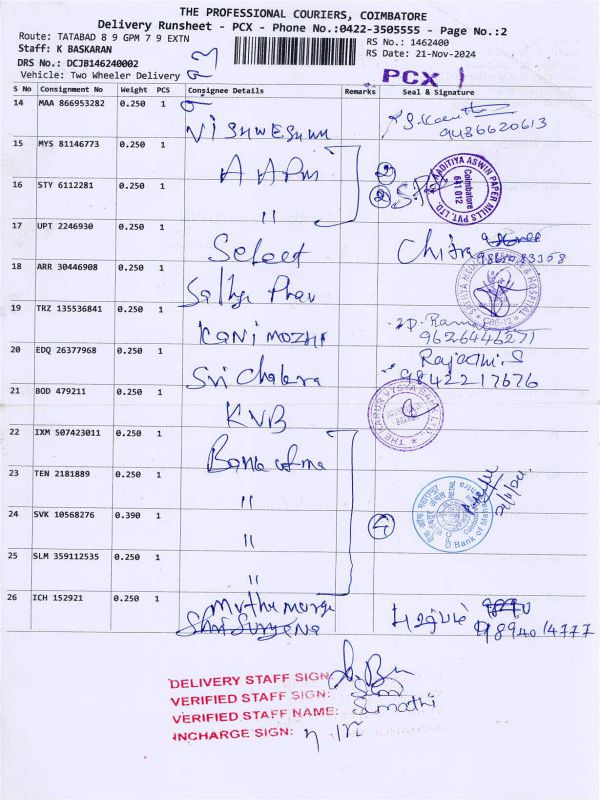 THE PROFESSIONAL COURIERS, COIMBATORE
Delivery Runsheet - PCX - Phone No.:0422-3505555 - Page No.:2
Route: TATABAD 8 9 GPM 7 9 EXTN
Staff: K BASKARAN
RS No.: 1462400
DRS No.: DCJB146240002
RS Date: 21-Nov-2024
Vehicle: Two Wheeler Delivery
PCX
S No Consignment No Weight PCS Consignee Details Remarks Seal & Signature
14 MAA 866953282 0.250 1
9486620613
15 MYS 81146773 0.250 1
AADITIYA ASWIN PAPER MILLS PVT. LTD.
Coimbatore
641 012
16 STY 6112281 0.250 1 "
17 UPT 2246930 0.250 1 Select Chitra
18 ARR 30446908 0.250 1
19 TRZ 135536841 0.250 1 KANIMOZHI
9626446271
20 EDQ 26377968 0.250 1 Sri Chakra
9842217676
21 BOD 479211 0.250 1 KVB
THE KARUR VYSYA BANK LTD.
22 IXM 507423011 0.250 1
23 TEN 2181889 0.250 1 "
24 SVK 10568276 0.390 1 " 4
25 SLM 359112535 0.250 1 "
26 ICH 152921 0.250 1
9894014777
DELIVERY STAFF SIGN:
VERIFIED STAFF SIGN:
VERIFIED STAFF NAME: Sumathi
INCHARGE SIGN: